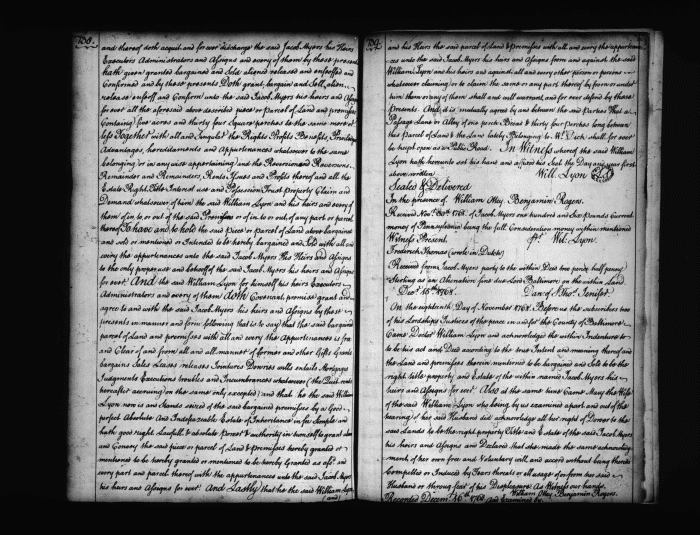 138.
and thereof doth acquit and for ever discharge the said Jacob Myers his Heirs
Executors Administrators and Assigns and every of them by these presents
hath given granted bargained and Sold aliened released and enfeoffed and
Confirmed and by these presents Doth grant, bargain and Sell, alien
release enfeoff and Confirm unto the said Jacob Myers his heirs and Assigns
for ever all the aforesaid above described piece or Parcel of Land and premises
Containing four acres and thirty four Square perches to the same more or
less Together with all and Singular the Rights Profits Benefits, Priviledges
Advantages, hereditaments and Appurtenances whatsoever to the same
belonging or in any wise appertaining and the Reversion and Reversions
Remainder and Remainders, Rents Issues and Profits thereof and all the
Estate Right Title Interest use and Possession Trust property Claim and
Demand whatsoever of him the said William Lyon and his heirs and every of
them of in to or out of the said Premises or of in to or out of any part or parcel
thereof To have and to hold the said piece or Parcel of Land above bargained
and sold or mentioned or Intended to be hereby bargained and Sold with all and
every the appurtenances unto the said Jacob Myers His Heirs and Assigns
to the only proper use and behoof of the said Jacob Myers his heirs and Assigns
for ever. And the said William Lyon for himself his heirs Executors
Administrators and every of them doth Covenant, promise grant and
agree to and with the said Jacob Myers his heirs and Assigns by these
presents in manner and form following that is to say that the said bargained
parcel of Land and premises with all and every the Appurtenances is free
and Clear of and from all and all manner of former and other Gifts Grants
bargains Sales Leases releases Jointures Dowries wills entails Mortgages
Judgments Executions troubles and Incumbrances whatsoever (the Quit rents
hereafter accruing on the same only excepted) and that he the said William
Lyon now is and Stands seized of the said bargained premises by a Good
perfect Absolute And Indefeazable Estate of Inheritance in fee Simple and
hath good right Lawfull & absolute Power & authority in himself to grant
and Convey the said piece or parcel of Land & premises hereby granted or
mentioned to be hereby granted or mentioned to be hereby Granted as afsd. and
every part and parcel thereof with the appurtenances unto the said Jacob Myers
his heirs and Assigns for ever. And Lastly that he the said William Lyon
(and)
139.
and his Heirs the said parcel of Land & premises with all and every the appurtenances
unto the said Jacob Myers his heirs and Assigns from and against the said
William Lyon and his heirs and against all and every other person or persons
whatsoever claiming or to claim the same or any part thereof by from or under
him them or any of them shall and will warrant, and for ever defend by these
Presents. And it is mutually agreed by and between the said Parties That a
Passage Lane or Alley of one perch Broad & thirty four Perches long between
this Parcel of Land & the Land lately Belonging to Mr. Dick shall for ever
be keept open as a Public Road. In Witness whereof the said William
Lyon hath hereunto set his hand and affixed his Seal the Day and year first
above written
Will Lyon
Sealed & Delivered
In the presence of William Otley. Benjamin Rogers.
Received Novr. 1768. of Jacob Myers one hundred and Six Pounds Current
money of Pennsylvania being the full Consideration money within mentioned
Witness Present.
pr. Wil: Lyon.
Frederick Thomas (wrote in Dutch)
Received from Jacob Myers party to the within Deed two pence half penny
Sterling as an Alienation fine due Lord Baltimore on the within Land
Decr. 15th. 1768.
Dan. of St. Thos. Jenifer.
On the eighteenth Day of November 1768. Before us the subscribers two
of his Lordships Justices of the peace in and for the County of Baltimore
Came Doctor William Lyon and acknowledged the within Indenture to
to be his act and Deed according to the true Intent and meaning thereof and
the Land and premises therein mentioned to be bargained and Sold to be the
right title property and Estate of the within named Jacob Myers his
heirs and Assigns for ever. Also at the same time Came Mary the Wife
of the said William Lyon who being by us examined apart and out of the
hearing of her said Husband did acknowledge all her right of Dower to the
said Lands to be the right property Title and Estate of the said Jacob Myers
his heirs and Assigns and Declared that she made the same acknowledg-
ment of her own free and Voluntary will and accord without being thereto
Compelled or Induced by Fears threats or ill usage of or from her said
Husband or through fear of his Displeasure. As Witness our hands.
William Otley Benjamin Rogers.
Recorded Decemr. 16th. 1768 and Examined by